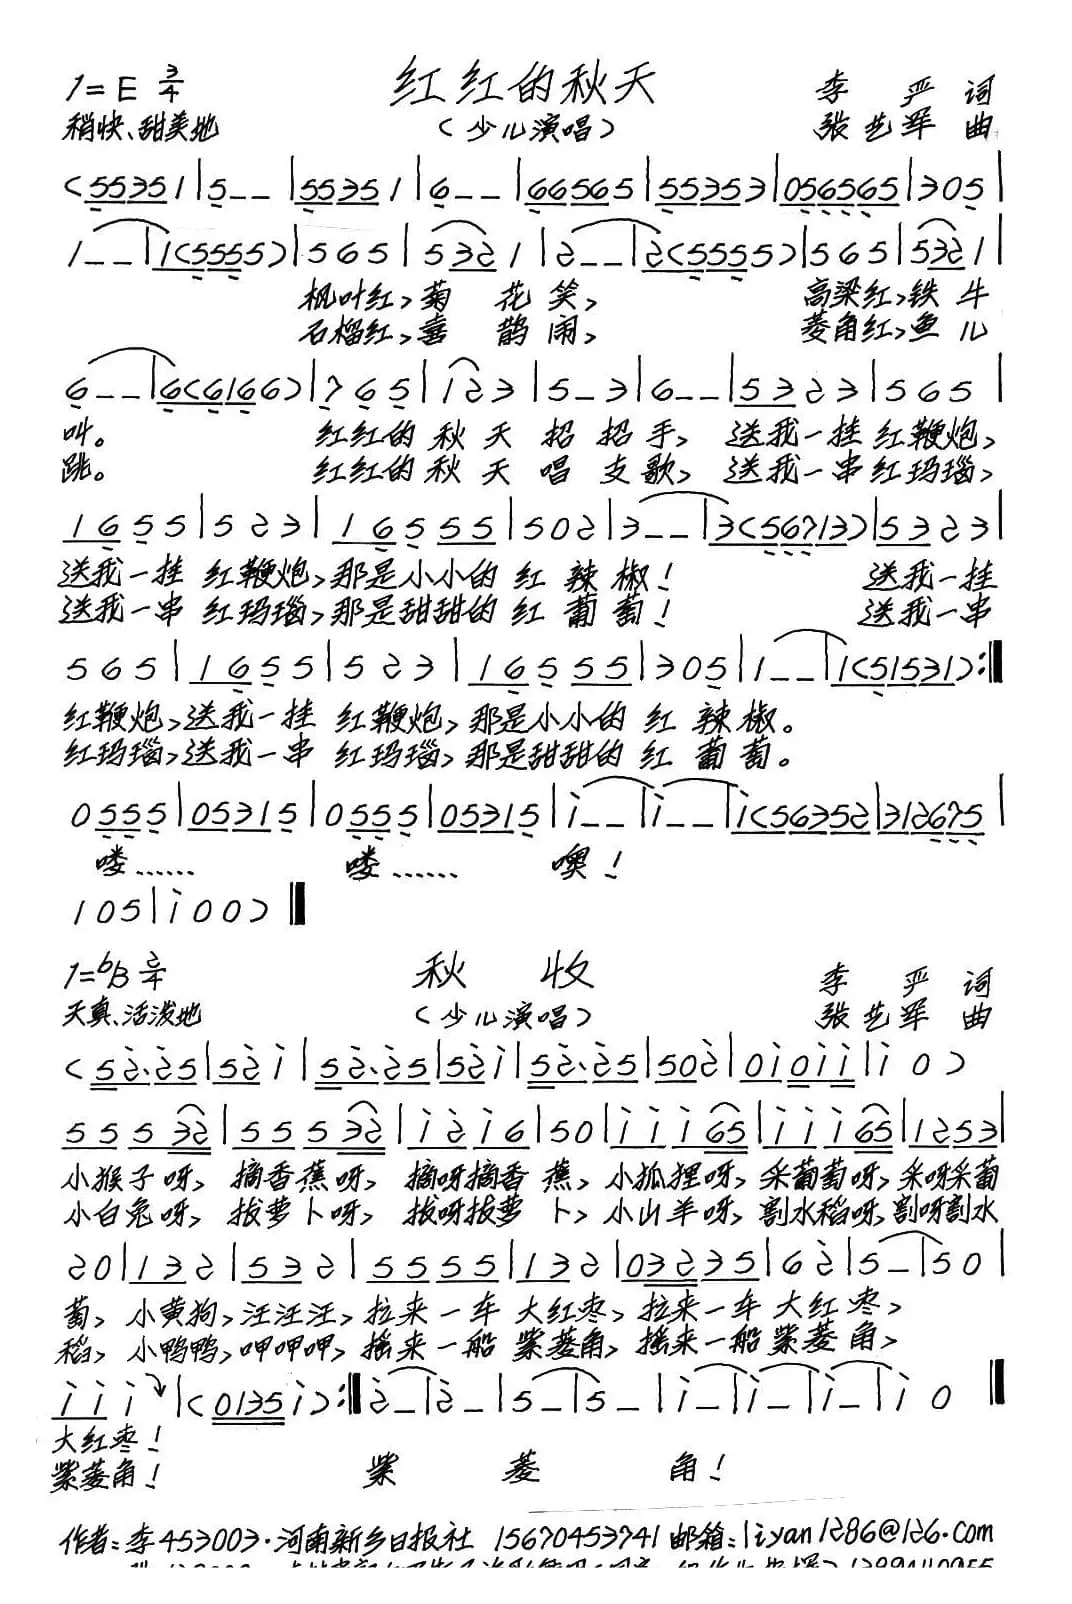 1=E 3/4 红红的秋天 李严 词
稍快、甜美地 (少儿演唱) 张艺军 曲
(55351|5--|55351|6--|66565|55353|056565|305|
1--|1(5555)|565|5321|2--|2(5555)|565|5321|
枫叶红,菊花笑, 高粱红,铁牛
石榴红,喜鹊闹, 菱角红,鱼儿
6--|6(6166)|765|123|5-3|6--|5323|565
叫。 红红的秋天招招手,送我一挂红鞭炮,
跳。 红红的秋天唱支歌,送我一串红玛瑙,
1655|523|16555|502|3--|3(56713)|5323|
送我一挂红鞭炮,那是小小的红辣椒! 送我一挂
送我一串红玛瑙,那是甜甜的红葡萄! 送我一串
565|1655|523|16555|305|1--|1(51531):‖
红鞭炮,送我一挂红鞭炮,那是小小的红辣椒。
红玛瑙,送我一串红玛瑙,那是甜甜的红葡萄。
0555|05315|0555|05315|i--|i--|i(56352|312675|
喽…… 喽…… 噢!
105|i00)‖
1=bB 2/4 秋收 李严 词
天真、活泼地 (少儿演唱) 张艺军 曲
(52·25|52i|52·25|52i|52·25|502|0i0ii|i0)
55532|55532|i2i6|50|iii65|iii65|1253|
小猴子呀,摘香蕉呀,摘呀摘香蕉,小狐狸呀,采葡萄呀,采呀采葡
小白兔呀,拔萝卜呀,拔呀拔萝卜,小山羊呀,割水稻呀,割呀割水
20|132|532|5555|132|03235|62|5-|50|
萄,小黄狗,汪汪汪,拉来一车大红枣,拉来一车大红枣,
稻,小鸭鸭,呷呷呷,摇来一船紫菱角,摇来一船紫菱角,
iii|(0135i):‖2-|2-|5-|5-|i-|i-|i-|i0‖
大红枣!
紫菱角! 紫菱角!
作者:李453003·河南新乡日报社 15670453741 邮箱:liyan1286@126.com